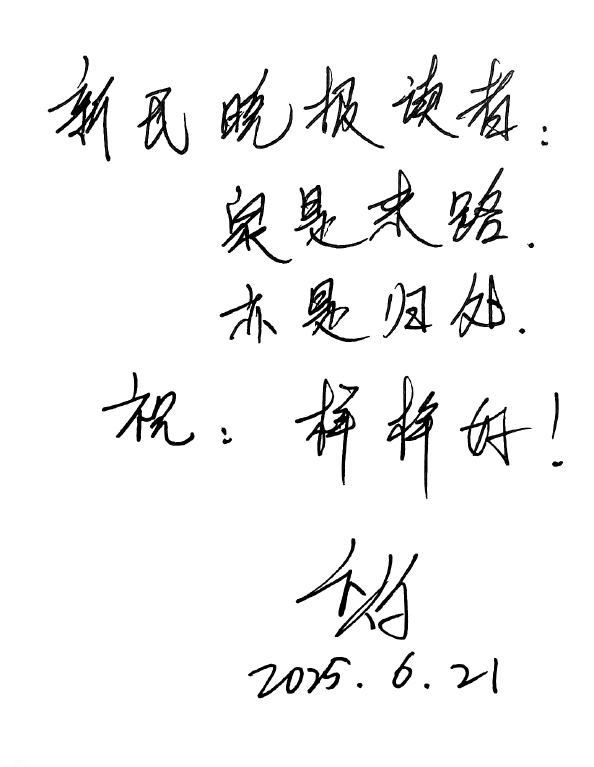 新民晚报读者：
泉是来路.
亦是归处.
祝：样样好！
2025.6.21